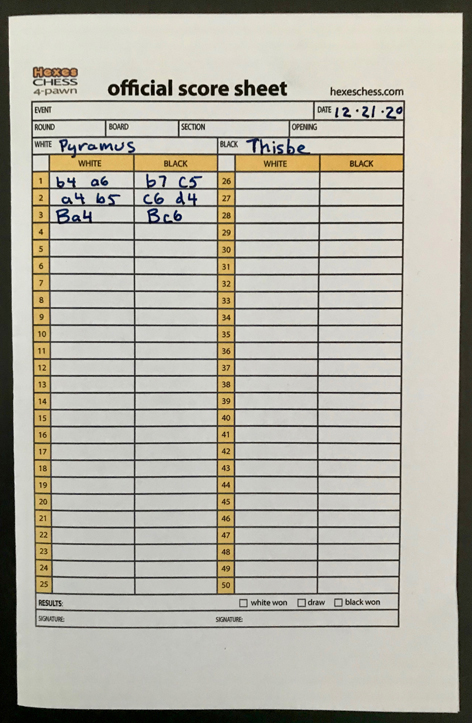 Hexes
CHESS
4-pawn
official score sheet
hexeschess.com
EVENT DATE 12·21·20
ROUND BOARD SECTION OPENING
WHITE Pyramus BLACK Thisbe
WHITE BLACK WHITE BLACK
1 b4 a6 b7 c5 26
2 a4 b5 c6 d4 27
3 Ba4 Bc6 28
4 29
5 30
6 31
7 32
8 33
9 34
10 35
11 36
12 37
13 38
14 39
15 40
16 41
17 42
18 43
19 44
20 45
21 46
22 47
23 48
24 49
25 50
RESULTS: white won draw black won
SIGNATURE: SIGNATURE: